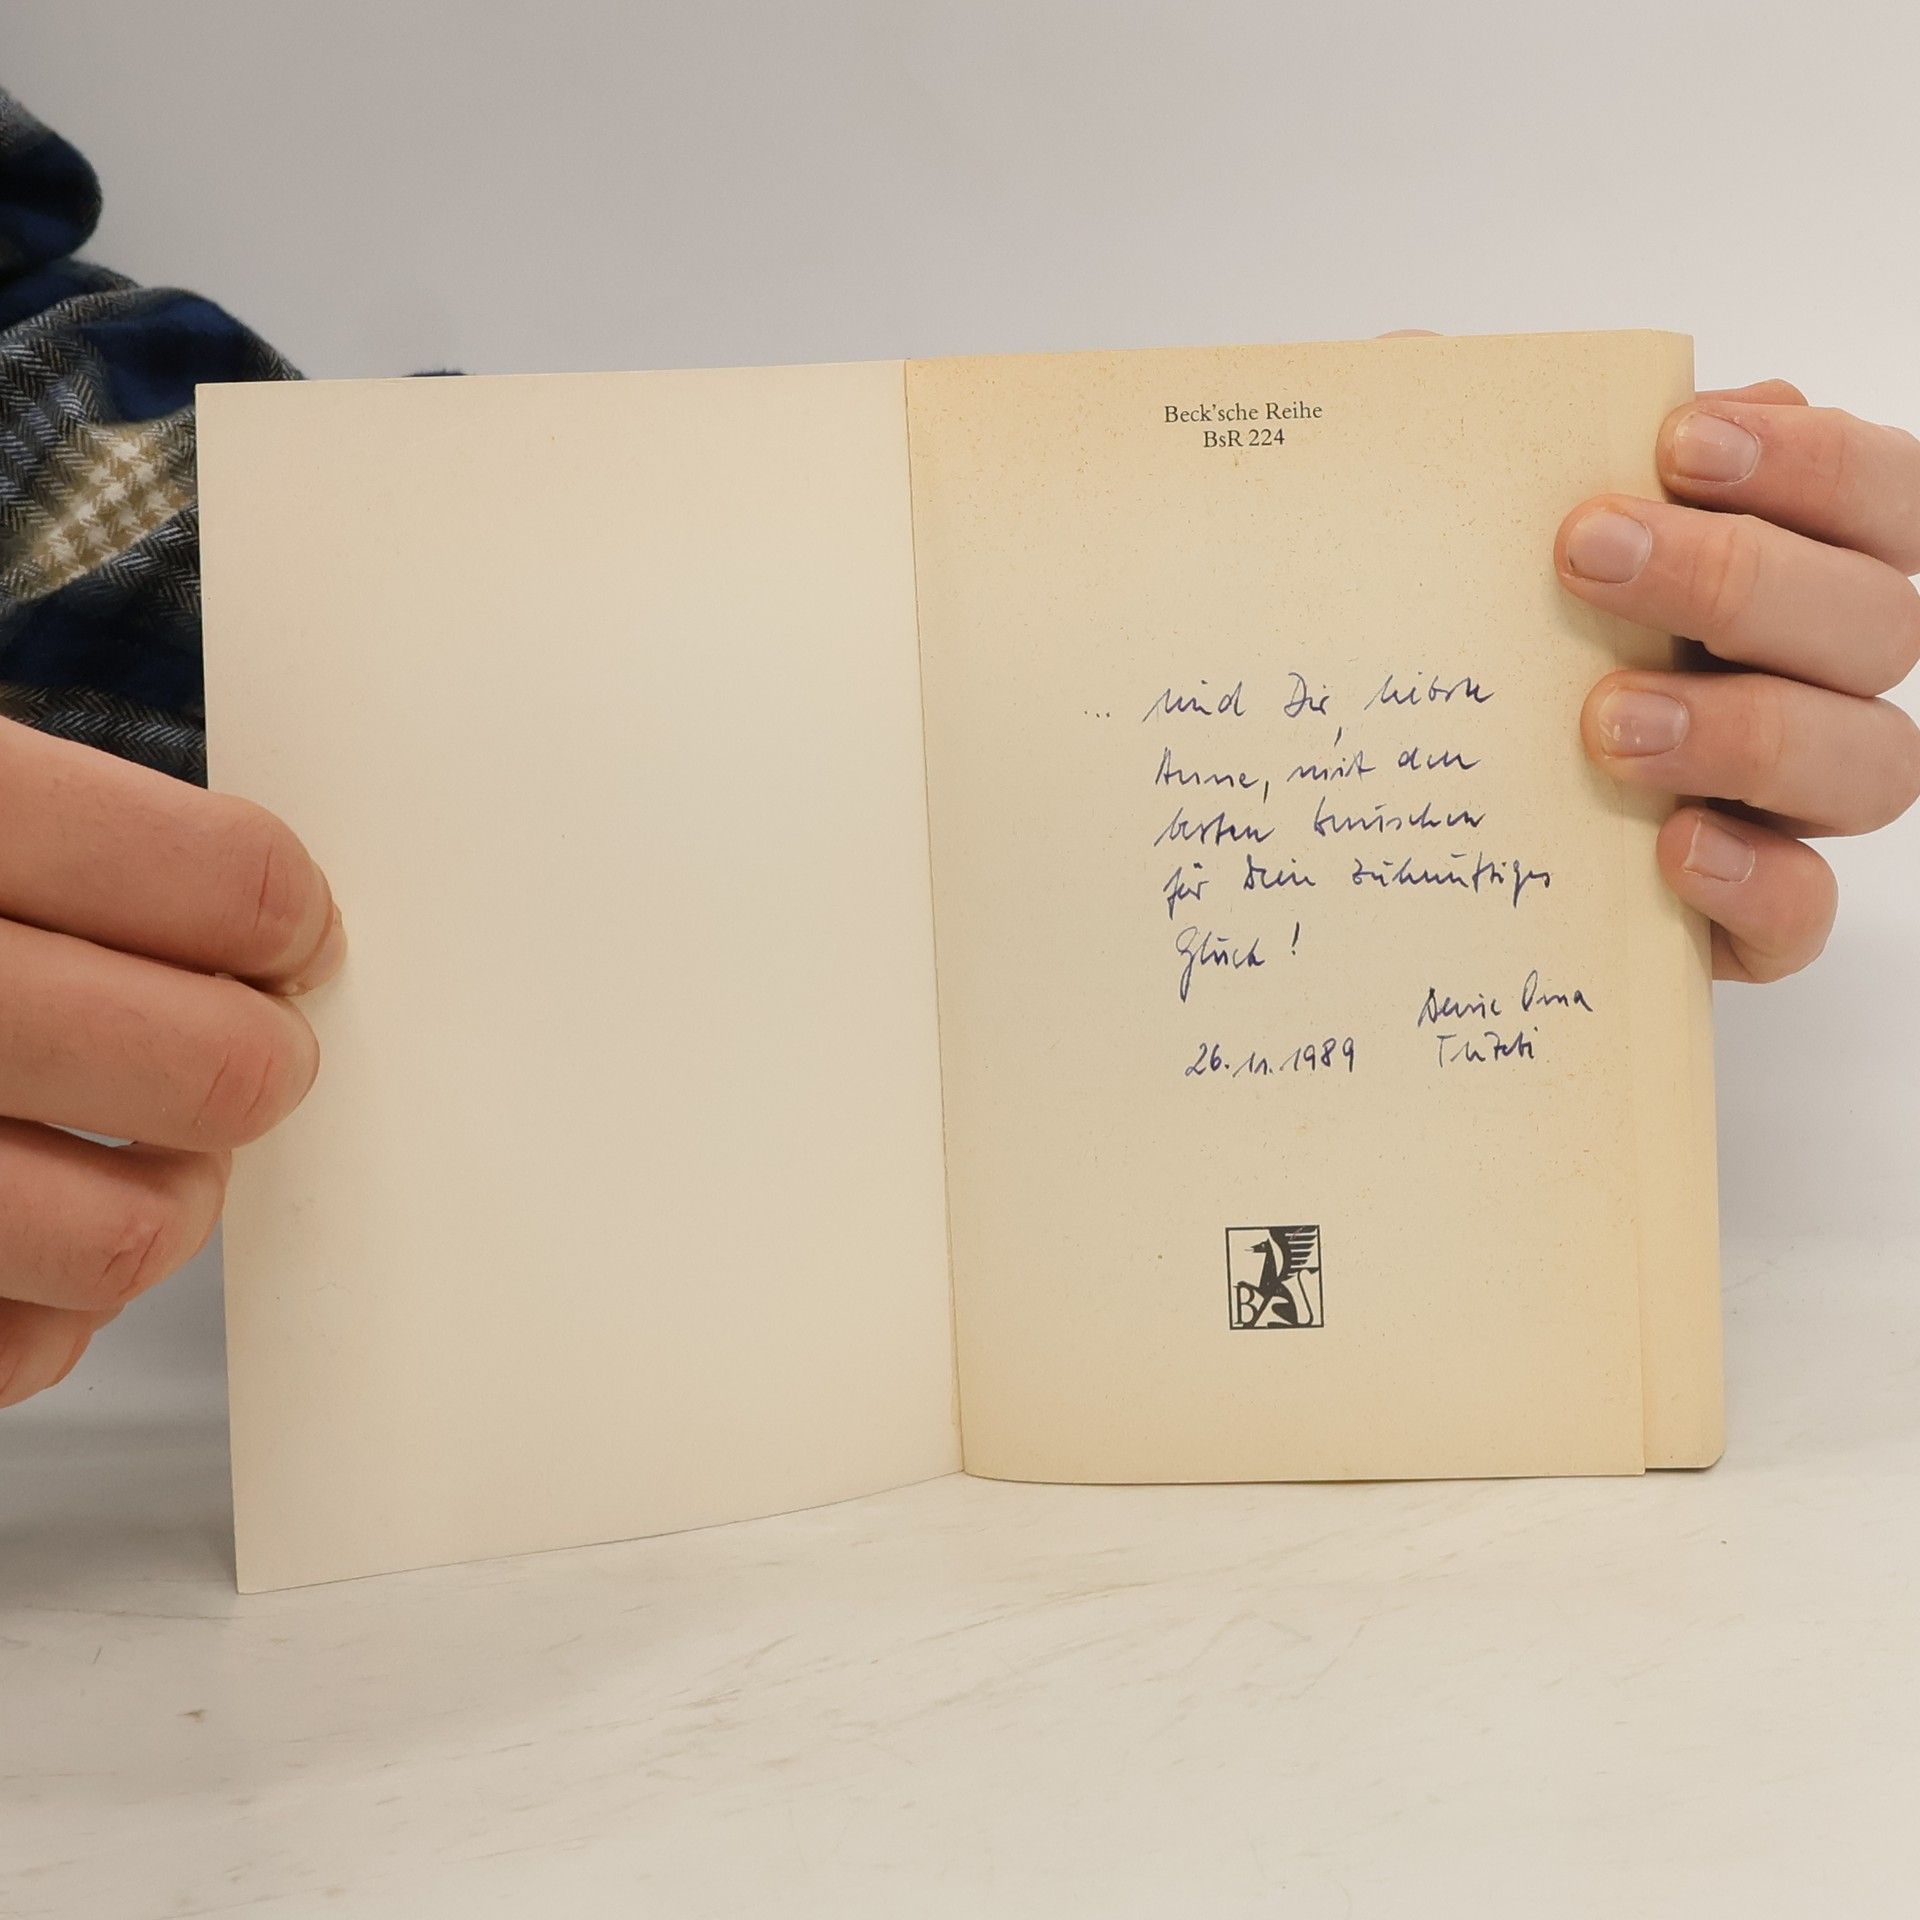 Beck'sche Reihe
BsR 224
... und Dir, liebste
Anne, mit den
besten Wünschen
für Dein zukünftiges
Glück!
Deine Oma
26.11.1989
B S